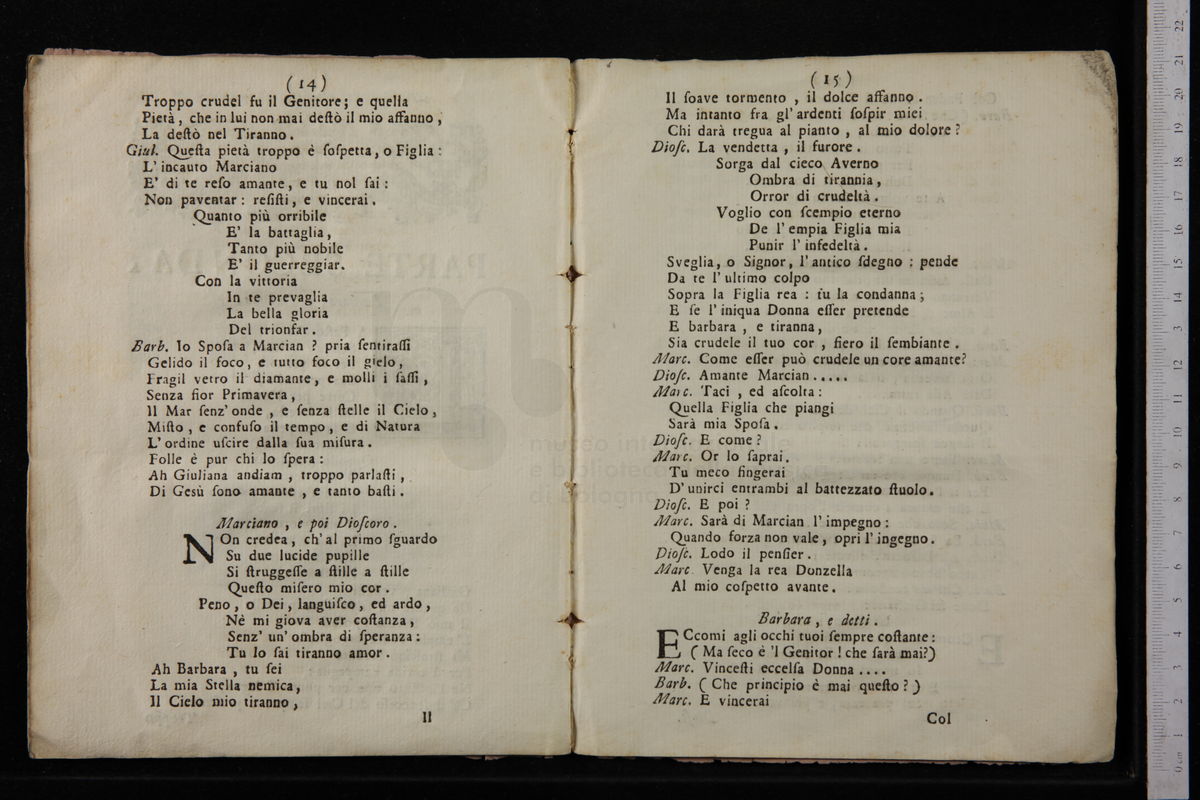 (14)
Troppo crudel fu il Genitore; e quella
Pietà, che in lui non mai deſtò il mio affanno,
La deſtò nel Tiranno.
Giul. Queſta pietà troppo è ſoſpetta, o Figlia:
L' incauto Marciano
E' di te reſo amante, e tu nol ſai:
Non paventar: reſiſti, e vincerai.
Quanto più orribile
E' la battaglia,
Tanto più nobile
E' il guerreggiar.
Con la vittoria
In te prevaglia
La bella gloria
Del trionfar.
Barb. Io Spoſa a Marcian? pria ſentiraſſi
Gelido il foco, e tutto foco il gielo,
Fragil vetro il diamante, e molli i ſaſſi,
Senza fior Primavera,
Il Mar ſenz' onde, e ſenza ſtelle il Cielo,
Miſto, e confuſo il tempo, e di Natura
L' ordine uſcire dalla ſua miſura.
Folle è pur chi lo ſpera:
Ah Giuliana andiam, troppo parlaſti,
Di Gesù ſono amante, e tanto baſti.
Marciano, e poi Dioſcoro.
NOn credea, ch' al primo ſguardo
Su due lucide pupille
Si ſtruggeſſe a ſtille a ſtille
Queſto miſero mio cor.
Peno, o Dei, languiſco, ed ardo,
Nè mi giova aver coſtanza,
Senz' un' ombra di ſperanza:
Tu lo ſai tiranno amor.
Ah Barbara, tu ſei
La mia Stella nemica,
Il Cielo mio tiranno,
Il
(15)
Il ſoave tormento, il dolce affanno.
Ma intanto fra gl' ardenti ſoſpir miei
Chi darà tregua al pianto, al mio dolore?
Dioſc. La vendetta, il furore.
Sorga dal cieco Averno
Ombra di tirannia,
Orror di crudeltà.
Voglio con ſcempio eterno
De l' empia Figlia mia
Punir l' infedeltà.
Sveglia, o Signor, l' antico ſdegno: pende
Da te l' ultimo colpo
Sopra la Figlia rea: tu la condanna;
E ſe l' iniqua Donna eſſer pretende
E barbara, e tiranna,
Sia crudele il tuo cor, fiero il ſembiante.
Marc. Come eſſer può crudele un core amante?
Dioſc. Amante Marcian.....
Marc. Taci, ed aſcolta:
Quella Figlia che piangi
Sarà mia Spoſa.
Dioſc. E come?
Marc. Or lo ſaprai.
Tu meco fingerai
D' unirci entrambi al battezzato ſtuolo.
Dioſc. E poi?
Marc. Sarà di Marcian l' impegno:
Quando forza non vale, opri l' ingegno.
Dioſc. Lodo il penſier.
Marc. Venga la rea Donzella
Al mio coſpetto avante.
Barbara, e detti.
ECcomi agli occhi tuoi ſempre coſtante:
(Ma ſeco è 'l Genitor! che ſarà mai?)
Marc. Vinceſti eccelſa Donna....
Barb. (Che principio è mai queſto?)
Marc. E vincerai
Col